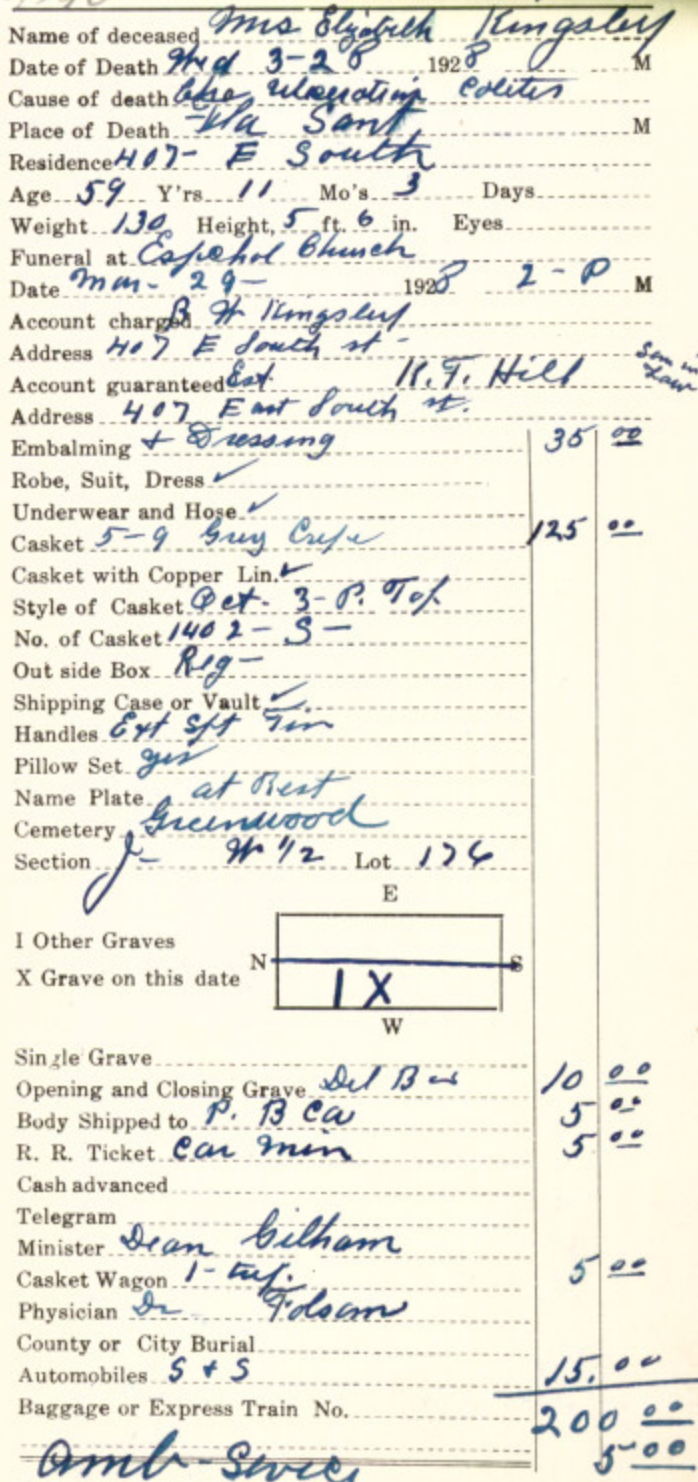 Name of deceased Mrs Elizabeth Kingsley
Date of Death Wed 3-28 1928 M
Cause of death ulcerative Colites
Place of Death Fla Sant M
Residence 407- E South
Age 59 Y'rs 11 Mo's 3 Days
Weight 130 Height, 5 ft. 6 in. Eyes
Funeral at Church
Date Mar- 29- 1928 2-P M
Account charged B W Kingsley
Address 407 E South st-
Account guaranteed Est K.T. Hill Son in Law
Address 407 East South st.
Embalming + Dressing 35 00
Robe, Suit, Dress ✓
Underwear and Hose ✓
Casket 5-9 Grey Crepe 125 00
Casket with Copper Lin. ✓
Style of Casket Oct- 3-P. Top
No. of Casket 1402-S-
Out side Box Reg-
Shipping Case or Vault ✓
Handles Ext
Pillow Set yes
Name Plate at Rest
Cemetery Greenwood
Section J- W 1/2 Lot 176
E
I Other Graves
N S
X Grave on this date
I X
W
Single Grave
Opening and Closing Grave Del 10 00
Body Shipped to P. B Ca 5 00
R. R. Ticket Car Min 5 00
Cash advanced
Telegram
Minister Dean Gilham
Casket Wagon 1- 5 00
Physician Dr Folsom
County or City Burial
Automobiles S + S 15.00
Baggage or Express Train No. 200 00
Amb- 5 00